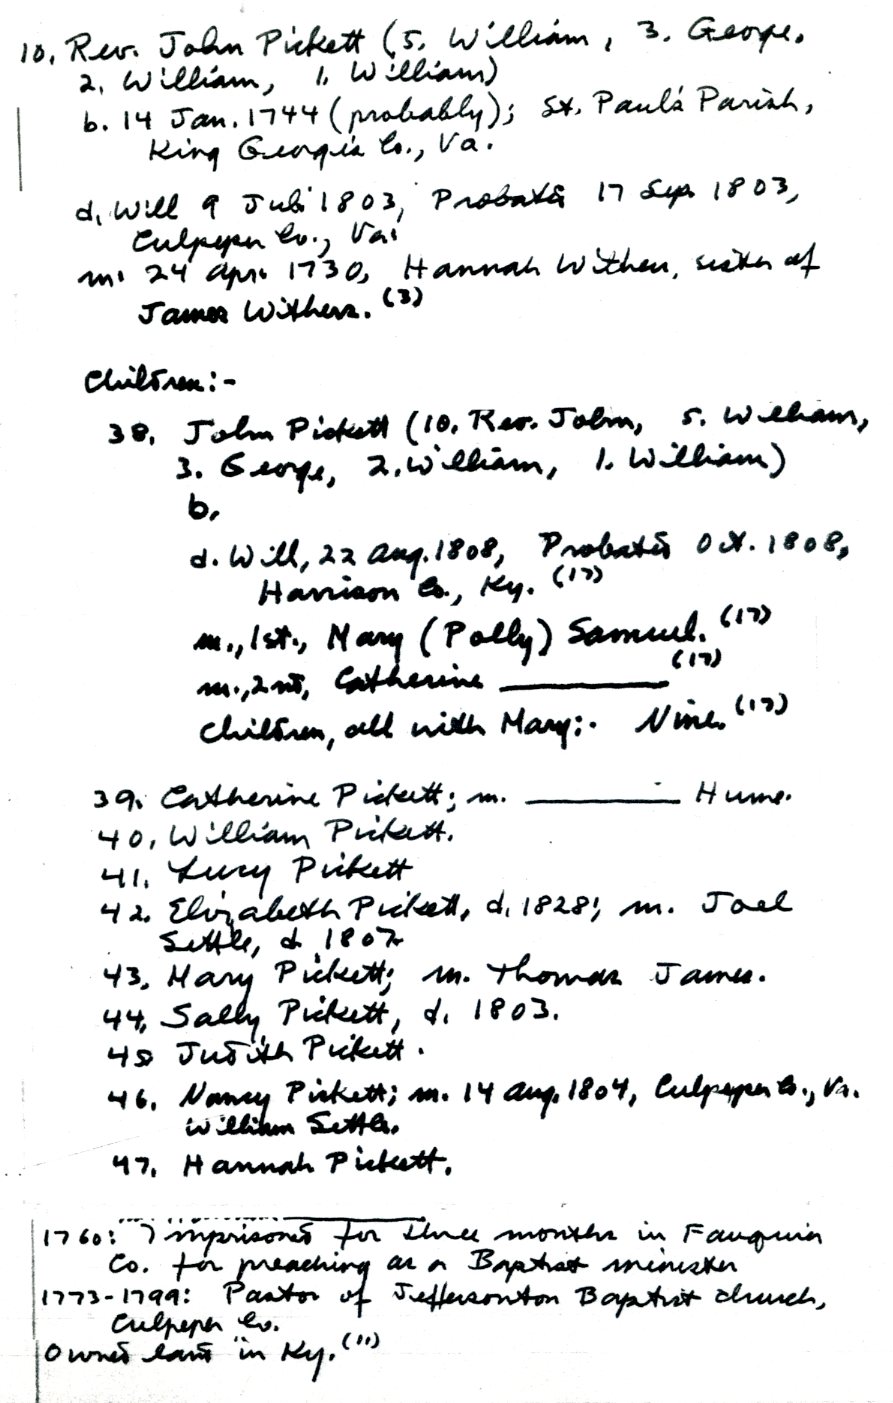 10. Rev. John Pickett (5. William, 3. George,
2. William, 1. William)
b. 14 Jan. 1744 (probably); St. Paul's Parish,
King George's Co., Va.
d. Will 9 Jul 1803, Probated 17 Sep. 1803,
Culpeper Co., Va.
m. 24 Apr. 1730, Hannah Withers, sister of
James Withers. (3)
Children:-
38. John Pickett (10. Rev. John, 5. William,
3. George, 2. William, 1. William)
b.
d. Will, 22 Aug. 1808, Probated Oct. 1808,
Harrison Co., Ky. (17)
m., 1st., Mary (Polly) Samuel. (17)
m., 2nd, Catherine ________ (17)
Children, all with Mary:- Nine. (17)
39. Catherine Pickett; m. ________ Hume.
40. William Pickett.
41. Lucy Pickett
42. Elizabeth Pickett, d. 1828; m. Joel
Settle, d. 1807
43. Mary Pickett; m. Thomas James.
44. Sally Pickett, d. 1803.
45 Judith Pickett.
46. Nancy Pickett; m. 14 Aug. 1804, Culpeper Co., Va.
William Settle.
47. Hannah Pickett.
1760: Imprisoned for three months in Fauquier
Co. for preaching as a Baptist minister
1773-1799: Pastor of Jeffersonton Baptist church,
Culpeper Co.
Owned land in Ky. (11)